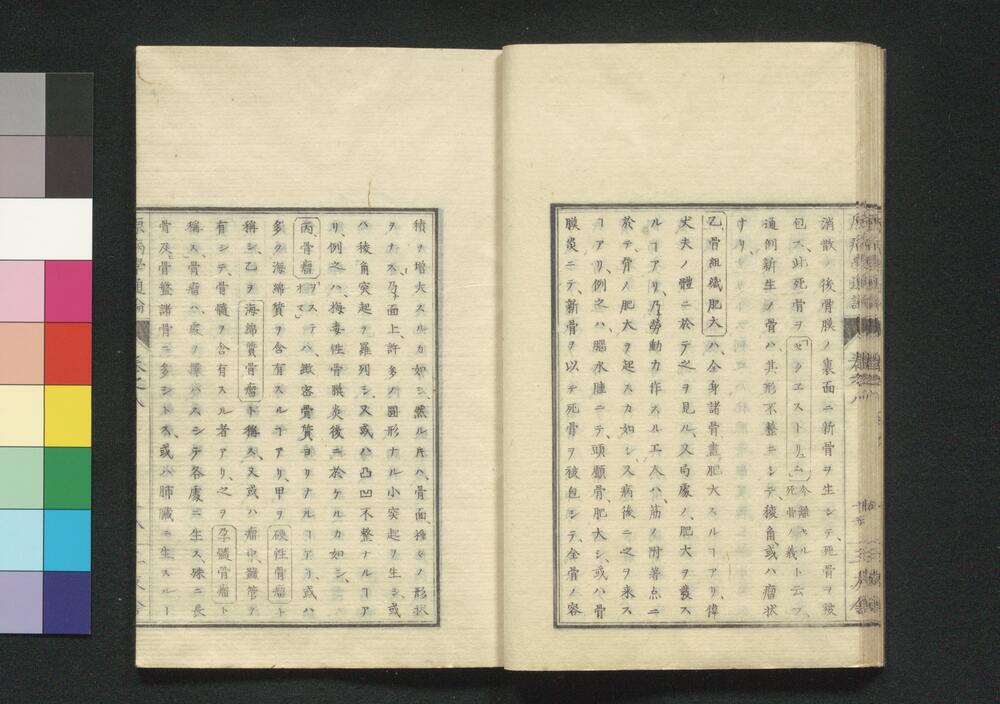 消散シ、後骨膜ノ裏面ニ新骨ヲ生シテ、死骨ヲ被
包ス、此死骨ヲ「セクエストリュム」今離セルト云フ、死骨ノ義
通例新生ノ骨ハ、其形不整ニシテ、稜角或ハ瘤状
ナリ、
乙、骨組織肥大ハ、全身諸骨盡ク肥大スルヿアリ、偉
丈夫ノ體ニ於テ之ヲ見ル、又局處ノ肥大ヲ發ス
ルヿアリ、乃チ勞動力作スル工人ハ、筋ノ附著点ニ
於テ、骨ノ肥大ヲ起スカ如シ、又病後ニ之ヲ来ス
ヿアリ、例之ハ、腦水腫ニテ、頭顱骨、肥大シ、或ハ骨
膜炎ニテ、新骨ヲ以テ死骨ヲ被包シテ、全骨ノ容
積ヲ増大スルカ如シ、然ル片ハ、骨面、種々ノ形状
ヲナス、乃チ面上、許多ノ圓形ナル小突起ヲ生シ、或
ハ稜角突起ヲ羅列シ、又或ハ凸凹不整ナルヿア
リ、例之ハ、梅毒性骨膜炎後ニ於ケルカ如シ、
丙、骨瘤「ヲステヲマ」ハ、緻密骨質ヨリナルヿアリ、或ハ
多ク海綿質ヲ含有スルヿアリ、甲ヲ硬性骨瘤ト
稱シ、乙ヲ海綿質骨瘤ト稱ス、又或ハ瘤中、髓管ヲ
有シテ、骨髓ヲ含有スル者アリ、之ヲ孕髓骨瘤ト
稱ス、骨瘤ハ、處ヲ擇ハスシテ各處ニ生ス、殊ニ長
骨及骨盤諸骨ニ多シトス、或ハ肺臟ニ生スルヿ
原病學通論